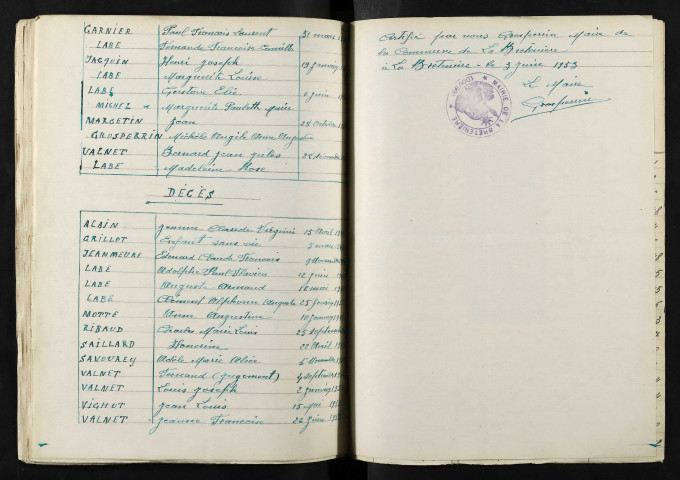 GARNIER Paul François Laurent 31 mars
LABE Fernande Francoise Camille
JACQUIN Henri Joseph 19 janvier
LABE Marguerite Louise
LABE Gustave Elie 6 juin
MICHEZ Marguerite Paulette Marie
MARGETIN Jean 28 Octobre
GROSPERRIN Michèle Angèle Anne Augustine
VALNET Bernard Jean Jules
LABE Madeleine Rose
DÉCÈS
ALAIN Jeanne Claude Virginie 15 Avril
GRILLOT Enfant sans vie 5 mars
JEANMEURE Edouard Claude Francois
LABE Adolphe Paul 12 juin
LABE Auguste Armand 18 mai
LABE Clément Alphonse Auguste 25 février
MOTTE Anne Augustine 10 janvier
RIBAUD Charles Marie Louis 25 Septembre
SAILLARD Honorine 22 Avril
SAVOUREY Adèle Marie Olive
VALNET Fernand (jugement) 4 Septembre
VALNET Louis Joseph 2 janvier
VIGHOT Jean Louis 15 Mai
VALNET Jeanne Francois 26 juin
Certifié par nous Grosperrin Maire de
la Commune de La Bretenière
à La Bretenière le 3 juin 1953
Le Maire
Grosperrin
MAIRIE DE LA BRETENIERE (DOUBS)